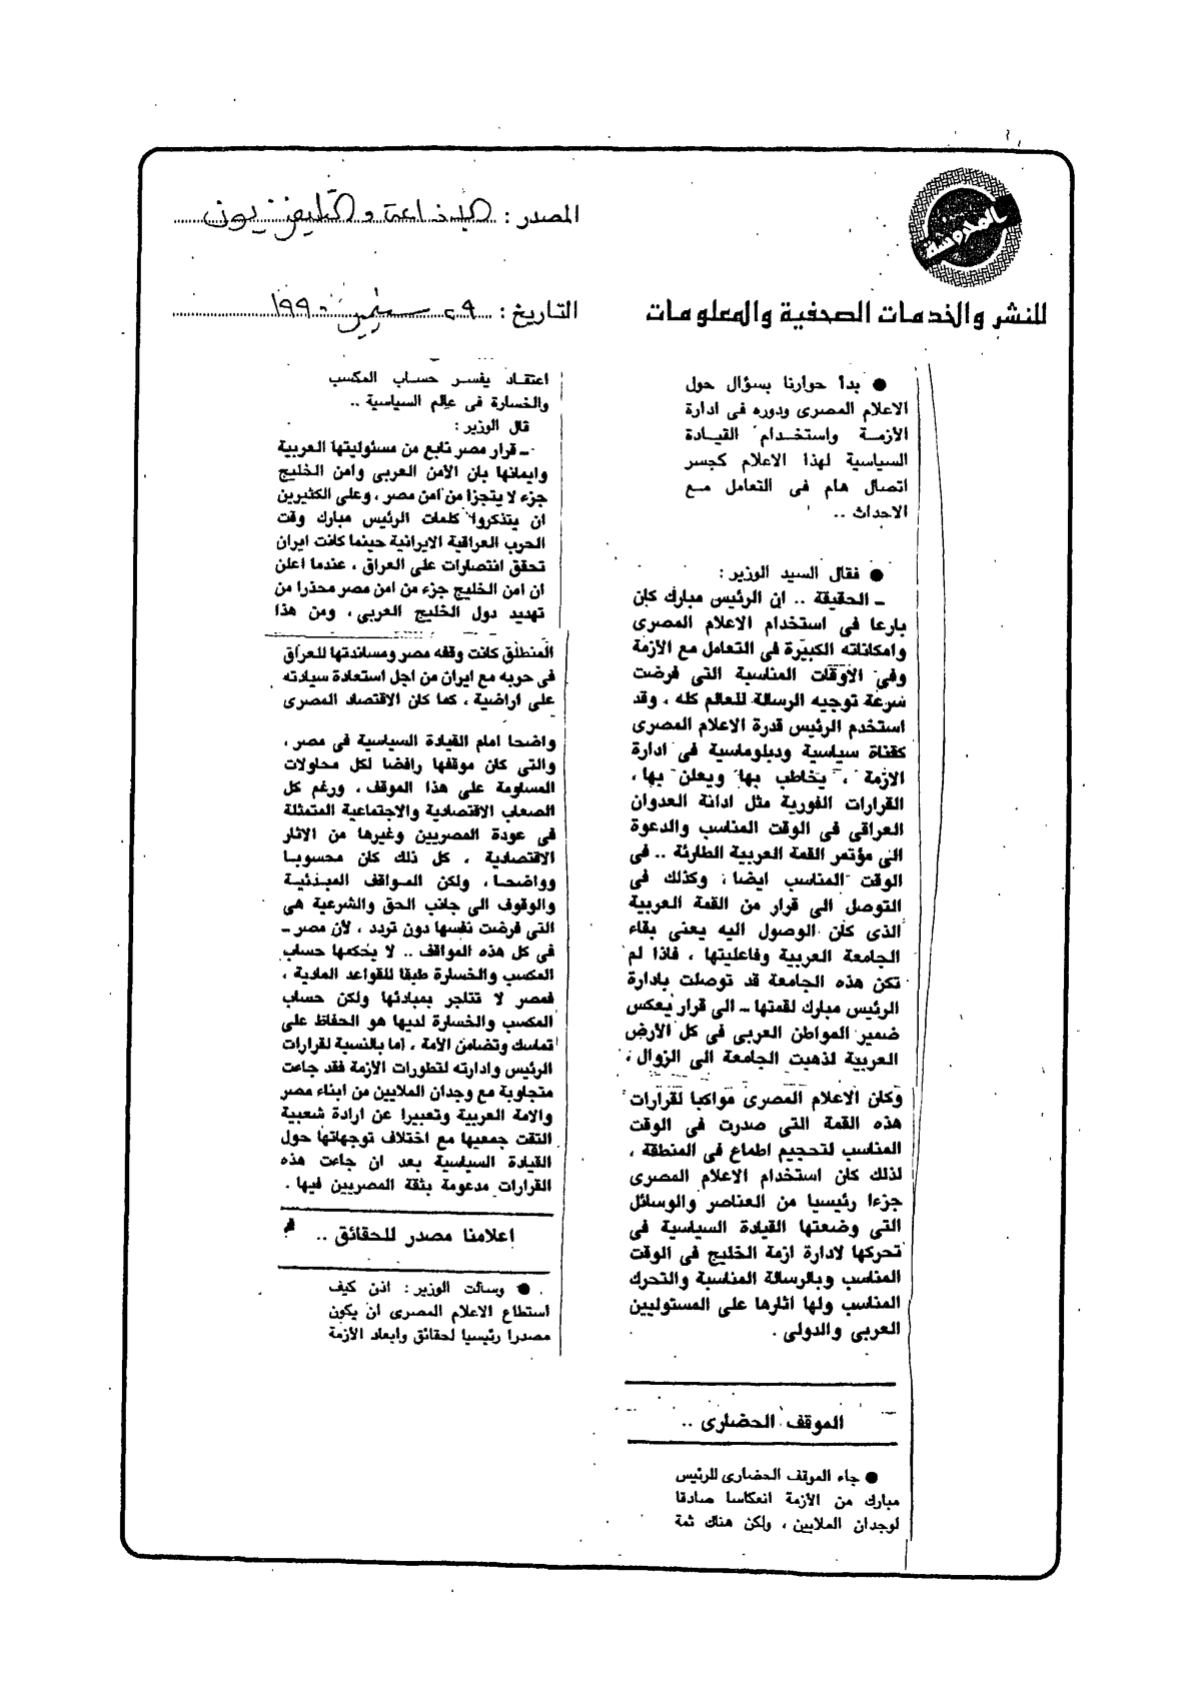 المحروسة
للنشر والخدمات الصحفية والمعلومات
المصدر : الإذاعة والتليفزيون
التاريخ : ٢٩ سبتمبر ١٩٩٠
● بدأ حوارنا بسؤال حول
الاعلام المصرى ودوره فى ادارة
الأزمـة واستخـدام القيـادة
السياسية لهذا الاعلام كجسر
اتصال هام فى التعامل مـع
الاحداث ..
● فقال السيد الوزير :
ـ الحقيقة .. ان الرئيس مبارك كان
بارعا فى استخدام الاعلام المصرى
وامكاناته الكبيرة فى التعامل مع الأزمة
وفى الأوقات المناسبة التى فرضت
سرعة توجيه الرسالة للعالم كله ، وقد
استخدم الرئيس قدرة الاعلام المصرى
كقناة سياسية ودبلوماسية فى ادارة
الازمة ، يخاطب بها ويعلن بها ،
القرارات الفورية مثل ادانة العدوان
العراقى فى الوقت المناسب والدعوة
الى مؤتمر القمة العربية الطارئة .. فى
الوقت المناسب ايضا ، وكذلك فى
التوصل الى قرار من القمة العربية
الذى كان الوصول اليه يعنى بقاء
الجامعة العربية وفاعليتها ، فاذا لم
تكن هذه الجامعة قد توصلت بادارة
الرئيس مبارك لقمتها ـ الى قرار يعكس
ضمير المواطن العربى فى كل الأرض
العربية لذهبت الجامعة الى الزوال ،
وكان الاعلام المصرى مواكبا لقرارات
هذه القمة التى صدرت فى الوقت
المناسب لتحجيم اطماع فى المنطقة ،
لذلك كان استخدام الاعلام المصرى
جزءا رئيسيا من العناصر والوسائل
التى وضعتها القيادة السياسية فى
تحركها لادارة ازمة الخليج فى الوقت
المناسب وبالرسالة المناسبة والتحرك
المناسب ولها اثارها على المستوليين
العربى والدولى .
الموقف الحضارى ..
● جاء الموقف الحضارى للرئيس
مبارك من الأزمة انعكاسا صادقا
لوجدان الملايين ، ولكن هناك ثمة
اعتقـاد يفسـر حسـاب المكسب
والخسارة فى عالم السياسية ..
قال الوزير :
ـ قرار مصر نابع من مسئوليتها العربية
وايمانها بان الأمن العربى وامن الخليج
جزء لا يتجزا من امن مصر ، وعلى الكثيرين
ان يتذكروا كلمات الرئيس مبارك وقت
الحرب العراقية الايرانية حينما كانت ايران
تحقق انتصارات على العراق ، عندما اعلن
ان امن الخليج جزء من امن مصر محذرا من
تهديد دول الخليج العربى ، ومن هذا
المنطلق كانت وقفه مصر ومساندتها للعراق
فى حربه مع ايران من اجل استعادة سيادته
على اراضية ، كما كان الاقتصاد المصرى
واضحا امام القيادة السياسية فى مصر ،
والتى كان موقفها رافضا لكل محاولات
المساومة على هذا الموقف ، ورغم كل
الصعاب الاقتصادية والاجتماعية المتمثلة
فى عودة المصريين وغيرها من الاثار
الاقتصادية ، كل ذلك كان محسوبـا
وواضحـا ، ولكن المـواقف المبـدئيـة
والوقوف الى جانب الحق والشرعية هى
التى فرضت نفسها دون تردد ، لأن مصر ـ
فى كل هذه المواقف .. لا يحكمها حساب
المكسب والخسارة طبقا للقواعد المادية ،
فمصر لا تتاجر بمبادئها ولكن حساب
المكسب والخسارة لديها هو الحفاظ على
تماسك وتضامن الأمة ، اما بالنسبة لقرارات
الرئيس وادارته لتطورات الازمة فقد جاءت
متجاوبة مع وجدان الملايين من ابناء مصر
والامة العربية وتعبيرا عن ارادة شعبية
التقت جمعيها مع اختلاف توجهاتها حول
القيادة السياسية بعد ان جاءت هذه
القرارات مدعومة بثقة المصريين فيها .
اعلامنا مصدر للحقائق ..
● وسالت الوزير : اذن كيف
استطاع الاعلام المصرى ان يكون
مصدرا رئيسيا لحقائق وابعاد الأزمة